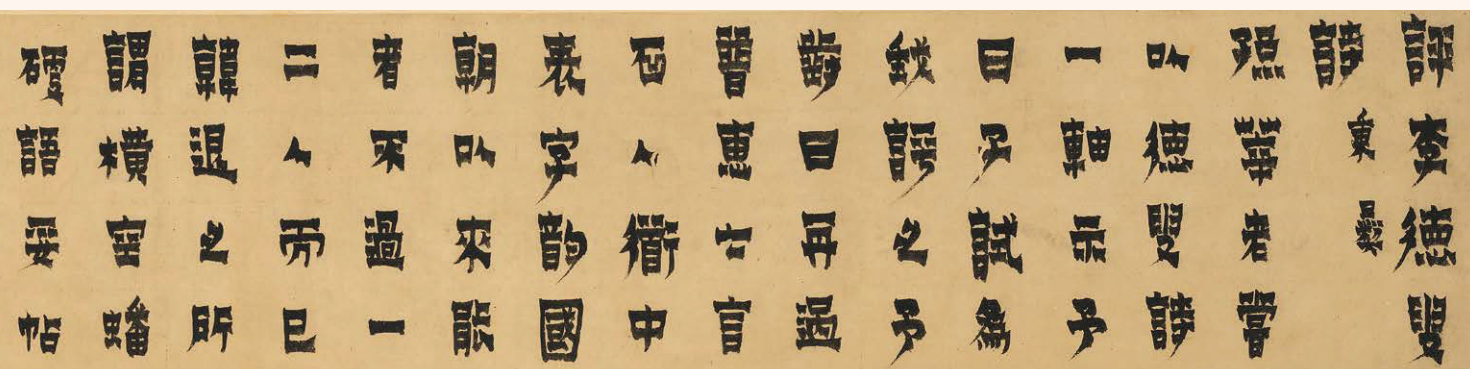 評李德叟
詩
秉彝
孫莘者嘗
以德叟詩
一軸示予
曰子試為
評之予
曰再過
惠七言
石人銜中
袁字韵國
朝以來能
者不過一
二人而已
韓退之所
謂橫空蟠
硬語妥帖